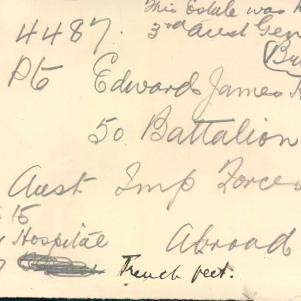 This Estate was
4487. 3rd Aust Gen
Pte Edward James
50 Battalion
Aust Imp Forces
15
Hospital Abroad
Trench feet.